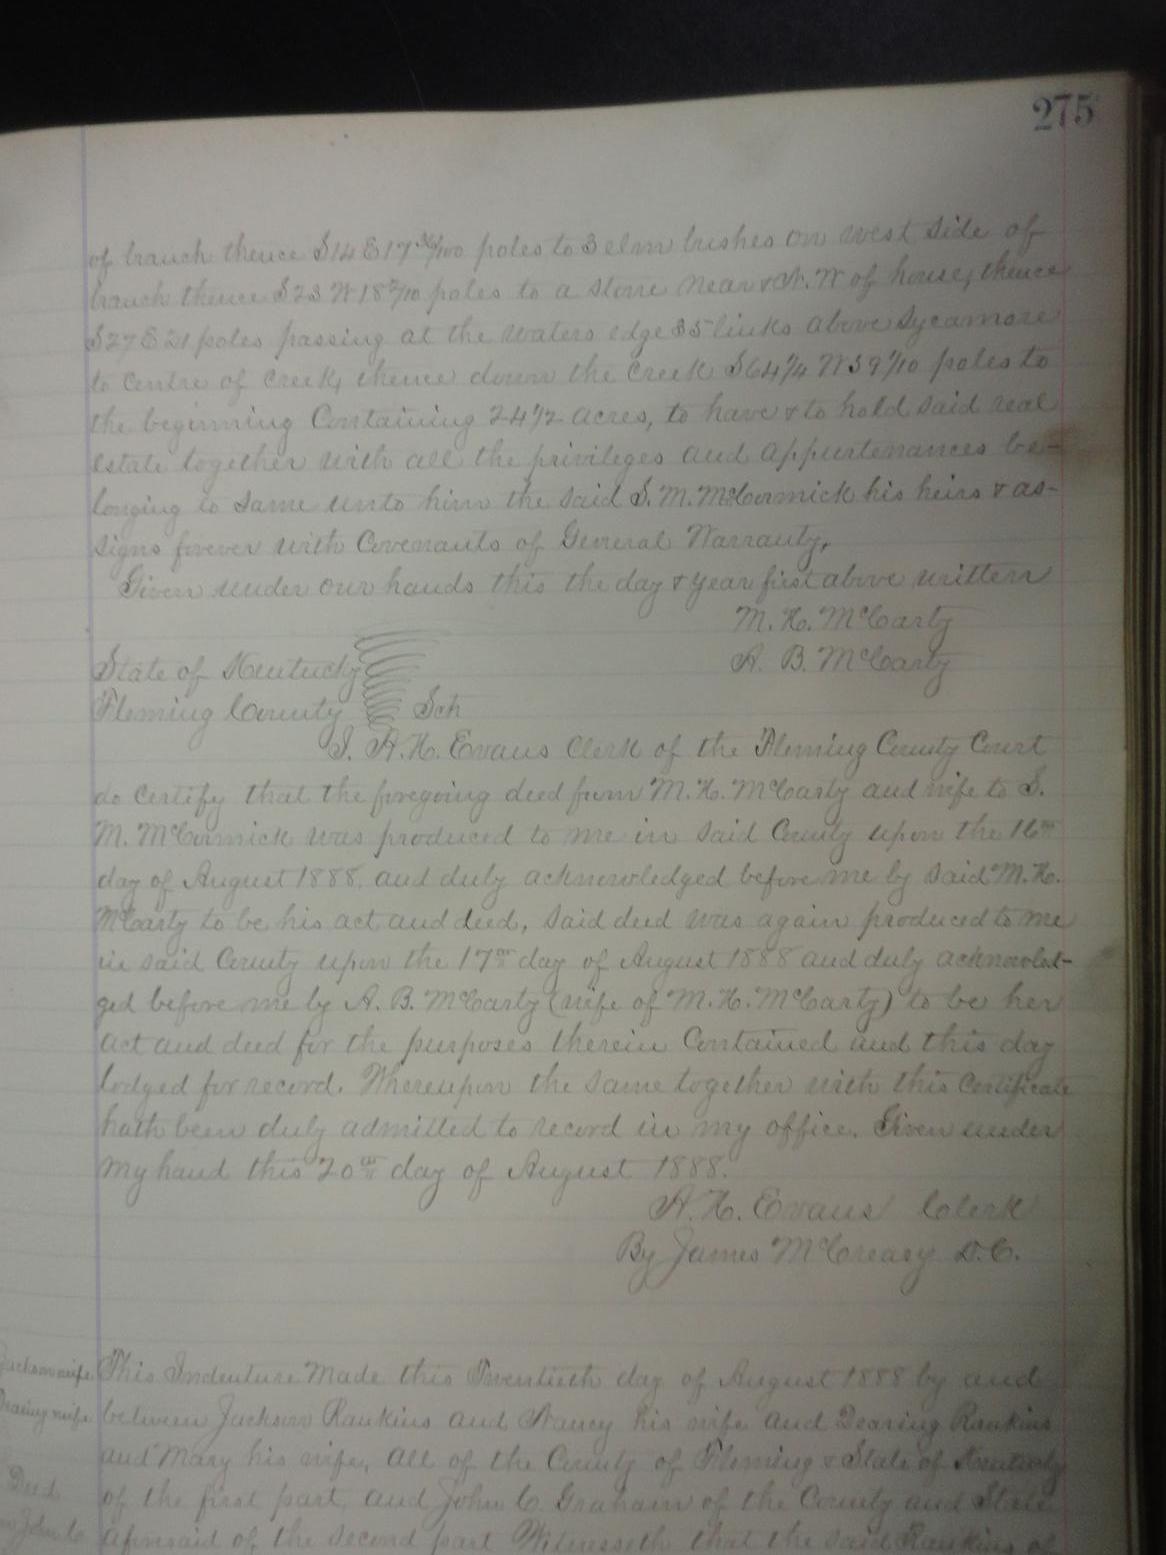 275
of branch thence S14 E 17 36/100 poles to 3 elm bushes on west side of
branch thence S23 W 18 2/10 poles to a stone near & N. W of house, thence
S27 E 21 poles passing at the waters edge 35 links above Sycamore
to centre of creek, thence down the creek S64 1/4 W 39 1/10 poles to
the beginning Containing 24 1/2 acres, to have & to hold said real
estate together with all the privileges and appurtenances be-
longing to same unto him the said S. M. McCormick his heirs & as-
signs forever with Covenants of General Warranty,
Given under our hands this the day & year first above written
M. H. McCarty
State of Kentucky
A. B. McCarty
Fleming County Sct
I. A. H. Evans Clerk of the Fleming County Court
do Certify that the foregoing deed from M. H. McCarty and wife to S.
M. McCormick was produced to me in said County upon the 16th
day of August 1888. and duly acknowledged before me by said M. H.
McCarty to be his act and deed, said deed was again produced to me
in said County upon the 17th day of August 1888 and duly acknowled-
ged before me by A. B. McCarty (wife of M. H. McCarty) to be her
act and deed for the purposes therein Contained and this day
lodged for record. Whereupon the same together with this Certificate
hath been duly admitted to record in my office. Given under
my hand this 20th day of August 1888.
A. H. Evans Clerk
By James McCreary D. C.
This Indenture Made this Twentieth day of August 1888 by and
between Jackson Rankins and Nancy his wife and Dearing Rankins
and Mary his wife, all of the County of Fleming & State of Kentucky
of the first part, and John C. Graham of the County and State
aforesaid of the second part Witnesseth that the said Rankins of
Jackson wife
Dearing wife
Deed
John C